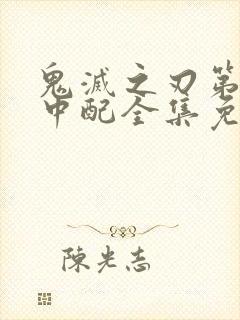 鬼滅之刃第
中配全集免
陳光志